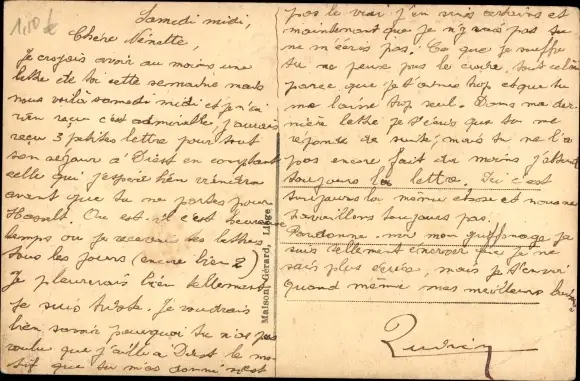 1,10 €
Samedi midi,
Chère Nénette,
Je croyais avoir au moins une
lettre de toi cette semaine mais
nous voilà samedi midi et je n'ai
rien reçu c'est admirable j'aurais
reçu 3 petites lettre pour tout
ton séjour à Diest en comptant
celle qui j'espère bien viendra
avant que tu ne partes pour
Hasselt. Ou est-il c'est heureux
temps ou je recevais tes lettres
tous les jours (encore bien 2)
Je pleurerais bien tellement
je suis triste. Je voudrais
bien savoir pourquoi tu n'as pas
voulu que j'aille à Diest le mo-
tif que tu m'as donné n'est
Maison Gérard, Liège
pas le vrai j'en suis certains et
maintenant que je n'y vais pas tu
ne m'écris pas. Ce que je souffre
tu ne peux pas le croire, tout cela
parce que je t'aime trop et que tu
me laisse trop seul. Dans ma der-
nière lettre je t'écris que tu me
réponde de suite, mais tu ne l'a
pas encore fait du moins j'attend
toujours la lettre. Ici c'est
toujours la même chose et nous ne
travaillons toujours pas.
Pardonne-moi mon griffonage je
suis tellement énervé que je ne
sais plus écrire, mais je t'envoi
quand même mes meilleurs